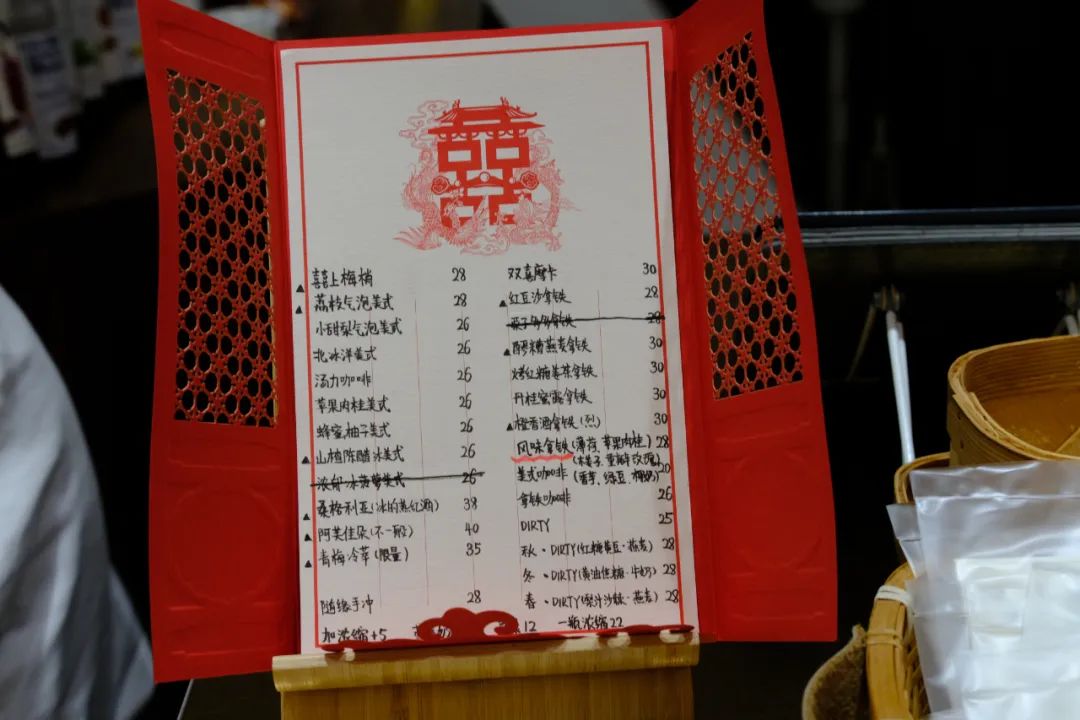 囍
▲ 囍上梅梢 28
▲ 荔枝气泡美式 28
小甜梨气泡美式 26
北冰洋美式 26
汤力咖啡 26
苹果肉桂美式 26
蜂蜜柚子美式 26
▲ 山楂陈醋冰美式 26
26
▲ 桑格利亚(冰的热红酒) 38
▲ 阿芙佳朵(不一般) 40
▲ 青梅冷萃(限量) 35
随缘手冲 28
加浓缩+5
双喜摩卡 30
▲ 红豆沙拿铁 28
栗子多多拿铁 28
▲ 醪糟燕麦拿铁 30
烤红糖姜茶拿铁 30
丹桂蜜露拿铁 30
▲ 橙香酒拿铁(烈) 30
风味拿铁(薄荷、苹果肉桂) 28
(木姜子、重瓣玫瑰)
美式咖啡 (香芋、绿豆、椰奶) 20
拿铁咖啡 26
DIRTY 25
秋·DIRTY(红糖黄豆·燕麦) 28
冬·DIRTY(黄油焦糖·牛奶) 28
春·DIRTY( 燕麦) 28
12 一瓶浓缩22